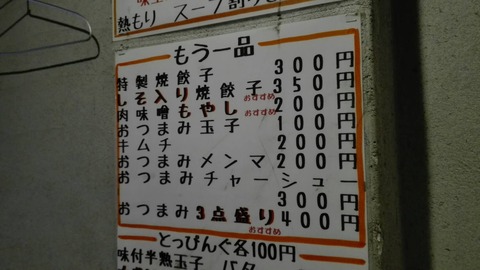 熱もり スープ割り
もう一品
特製焼餃子 300円
しそ入り焼餃子 350円
おすすめ
肉味噌もやし 200円
おすすめ
おつまみ玉子 100円
キムチ 200円
おつまみメンマ 200円
おつまみチャーシュー
300円
おつまみ3点盛り 400円
おすすめ
とっぴんぐ各100円
味付半熟玉子 バター